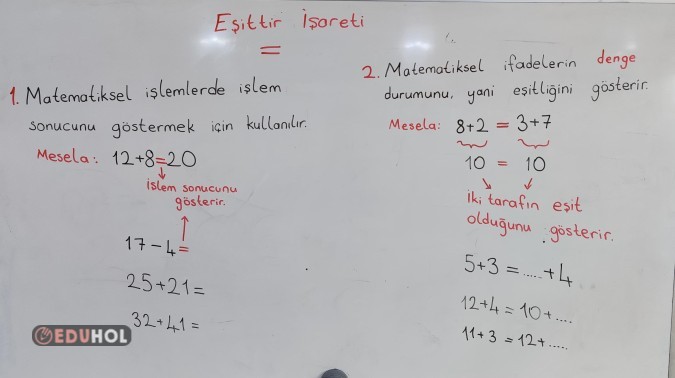 Eşittir İşareti
=
1. Matematiksel işlemlerde işlem
sonucunu göstermek için kullanılır.
Mesela: 12+8=20
İşlem sonucunu
gösterir.
17-4=
25+21=
32+41=
2. Matematiksel ifadelerin denge
durumunu, yani eşitliğini gösterir.
Mesela: 8+2 = 3+7
10 = 10
İki tarafın eşit
olduğunu gösterir.
5+3 = .....+4
12+4 = 10+....
11+3 = 12+.....
EDUHOL